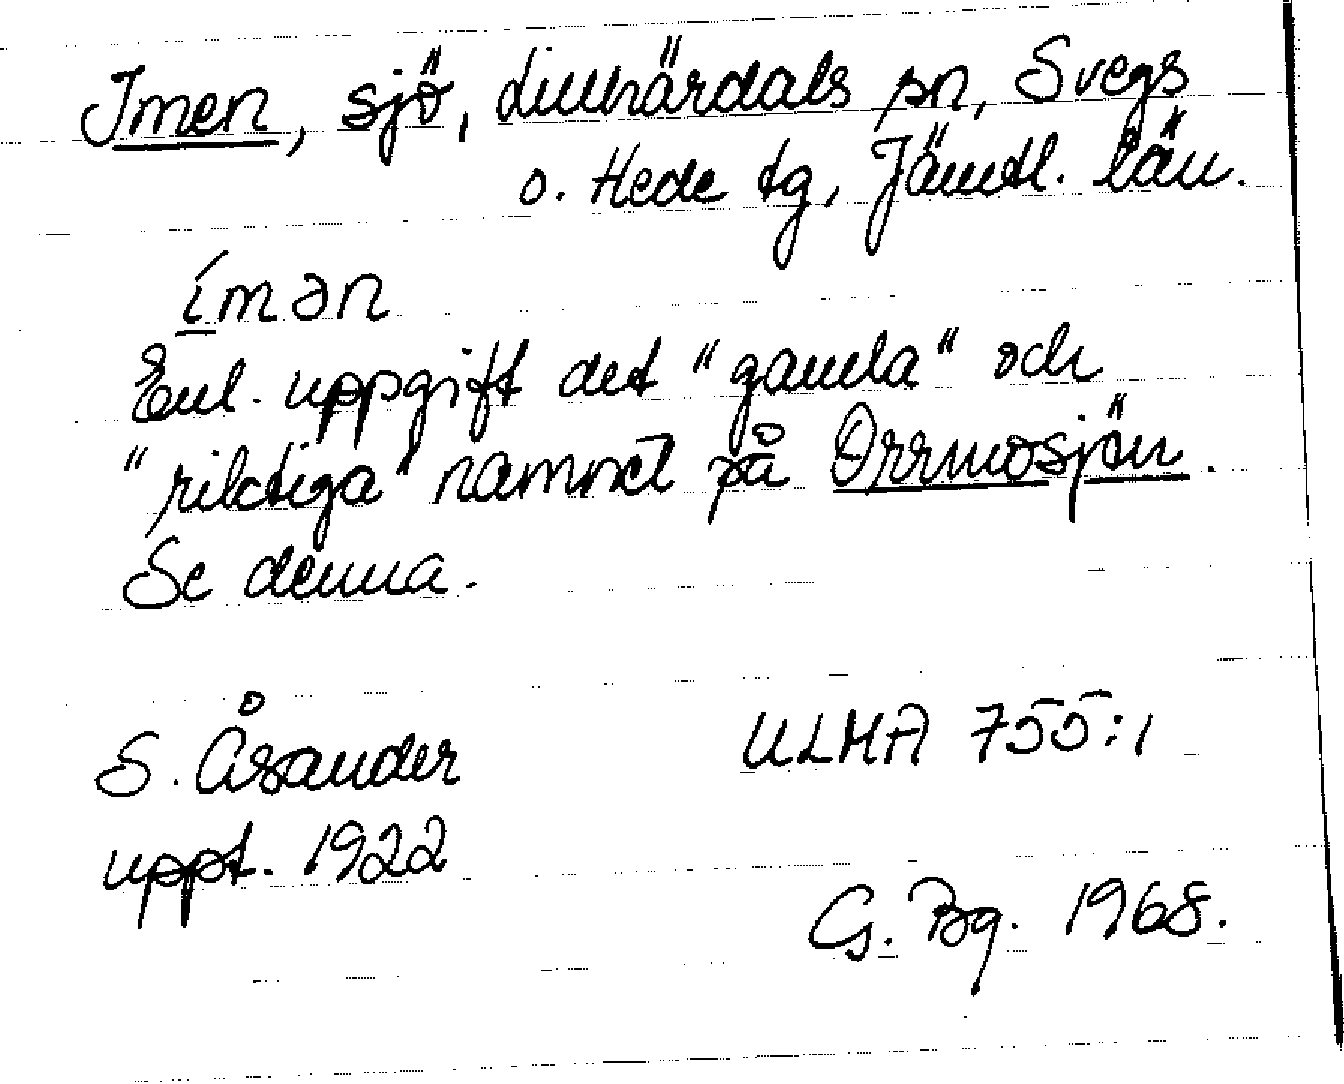 Imen, sjö, Lillhärdals sn, Svegs
o. Hede tg, Jämtl. län.
ímən
Enl. uppgift det "gamla" och
"riktiga" namnet på Orrmosjön.
Se denna.
S. Åsander ULMA 755:1
uppt. 1922
G. Bg. 1968.